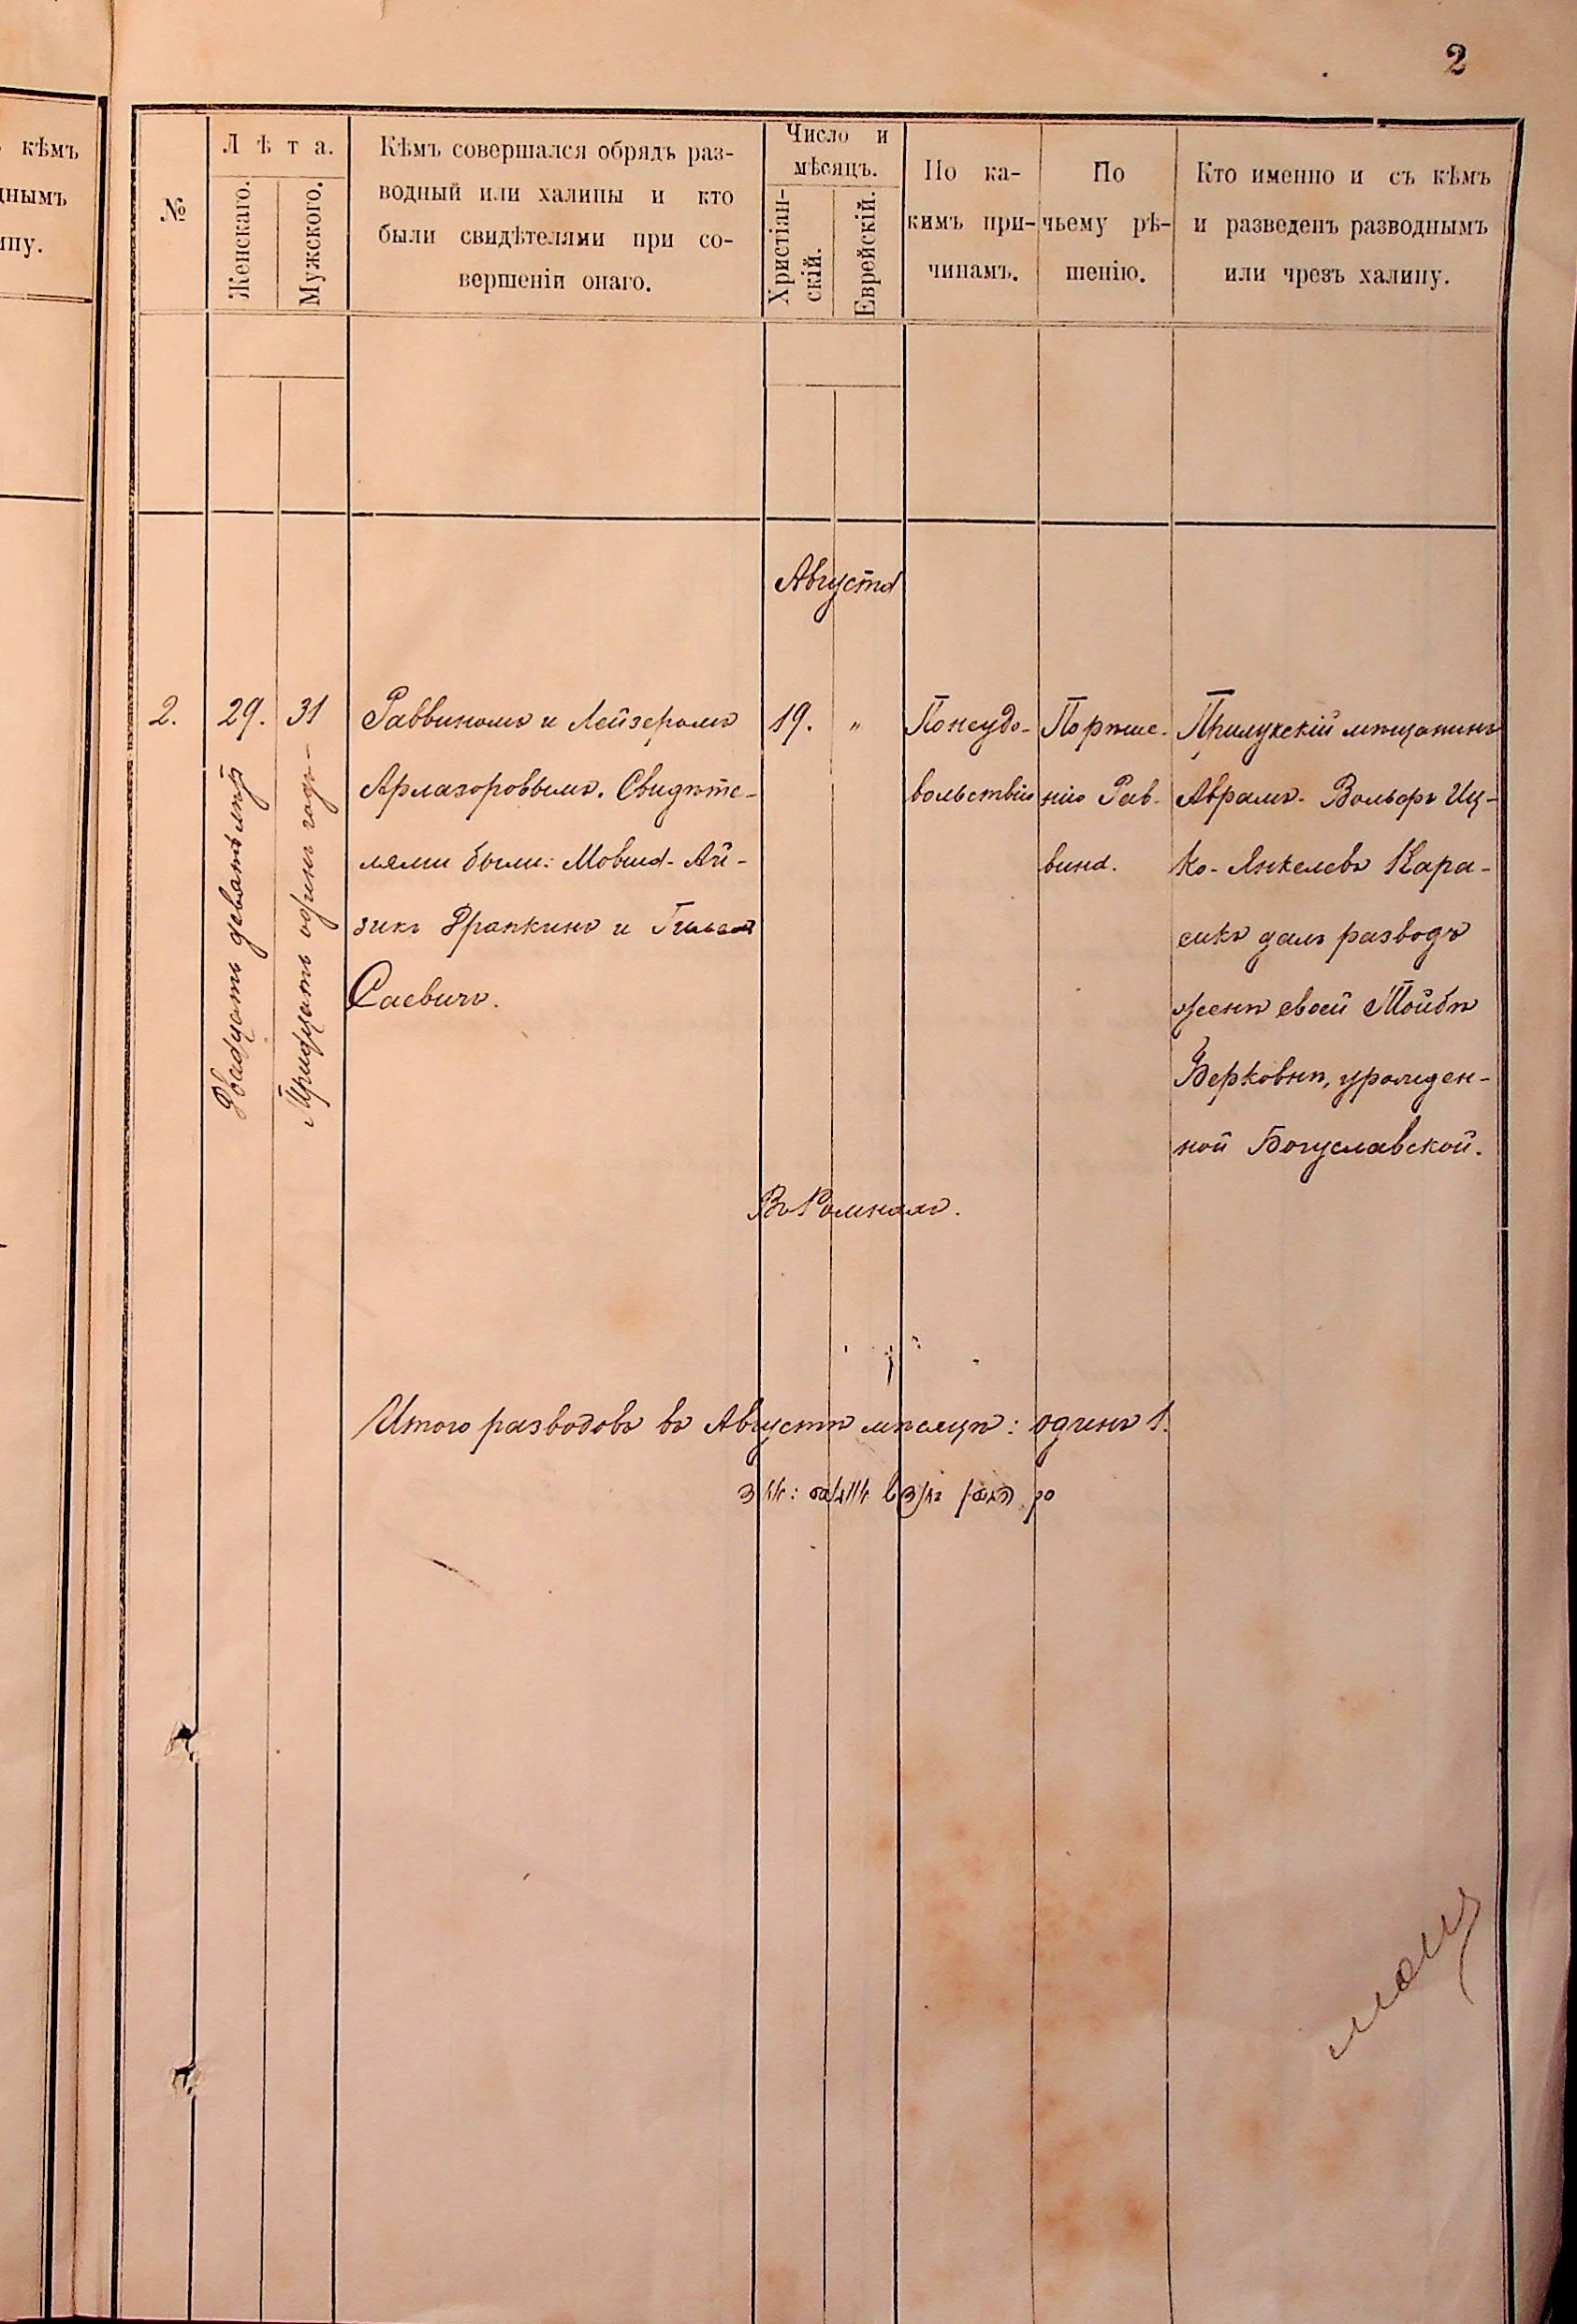 2
кѣмъ
нымъ
ипу.
№
Лѣта.
Женскаго.
Мужскаго.
Кѣмъ совершался обрядъ раз-
водный или халицы и кто
были свидѣтелями при со-
вершеніи онаго.
Число и
мѣсяцъ.
Христіан-
скій.
Еврейскій.
По ка-
кимъ при-
чинамъ.
По
чьему рѣ-
шенію.
Кто именно и съ кѣмъ
и разведенъ разводнымъ
или чрезъ халицу.
Августа
2.
29.
Двадцать девять лѣтъ
31
Тридцать одинъ годъ-
Раввиномъ и Лейзеромъ
Арлазоровымъ. Свидѣте-
лями были: Мовша-Ай-
зикъ Фрапкинъ и
Саевичъ.
19. "
По неудо-
вольствію
По рѣше-
нію Рав-
вина.
Прилукскій мѣщанинъ
Аврамъ-Вольфъ Иц-
ко-Янкелевъ Кара-
сикъ далъ разводъ
женѣ своей Тойбѣ
Берковнѣ, урожден-
ной Богуславской.
Въ Ромнахъ.
Итого разводовъ въ Августѣ мѣсяцѣ: одинъ 1.